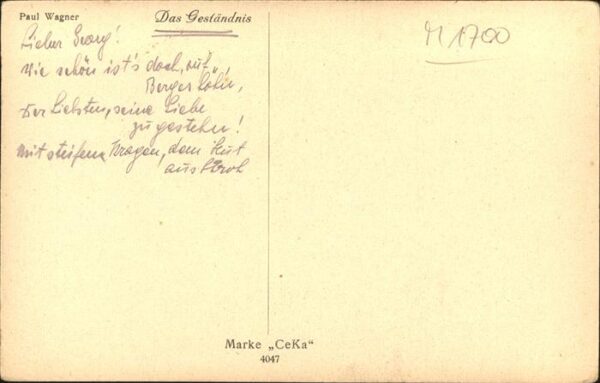 Paul Wagner
Das Geständnis
Lieber Georg!
Wie schön ist's doch, auf
Berges Höh'n,
Der Liebsten, seine Liebe
zu gestehn!
Mit steifem Kragen, dem Hut
aus Stroh
M 1700
Marke „CeKa"
4047